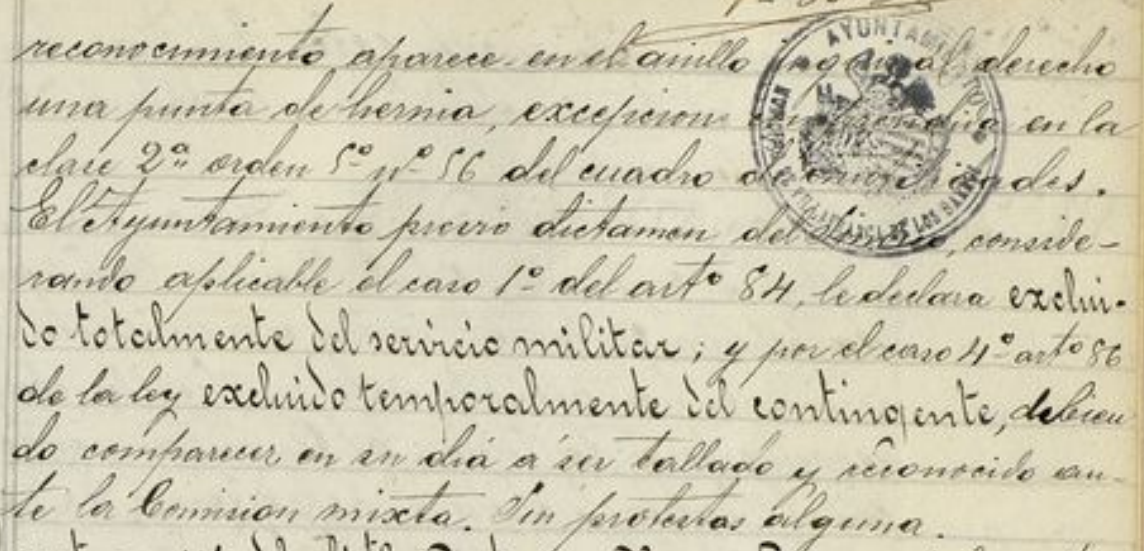 reconocimiento aparece en el anillo inguinal derecho
una punta de hernia, excepcion comprendida en la
clase 2ª orden 5º nº 56 del cuadro de
El Ayuntamiento previo dictamen del conside-
rando aplicable el caso 1º del artº 84, le declara exclui-
do totalmente del servicio militar; y por el caso 4º artº 86
de la ley excluido temporalmente del contingente, debien
do comparecer en su dia á ser tallado y reconocido an-
te la Comision mixta. Sin protestas alguna.
AYUNTAMIENTO
DE LOS